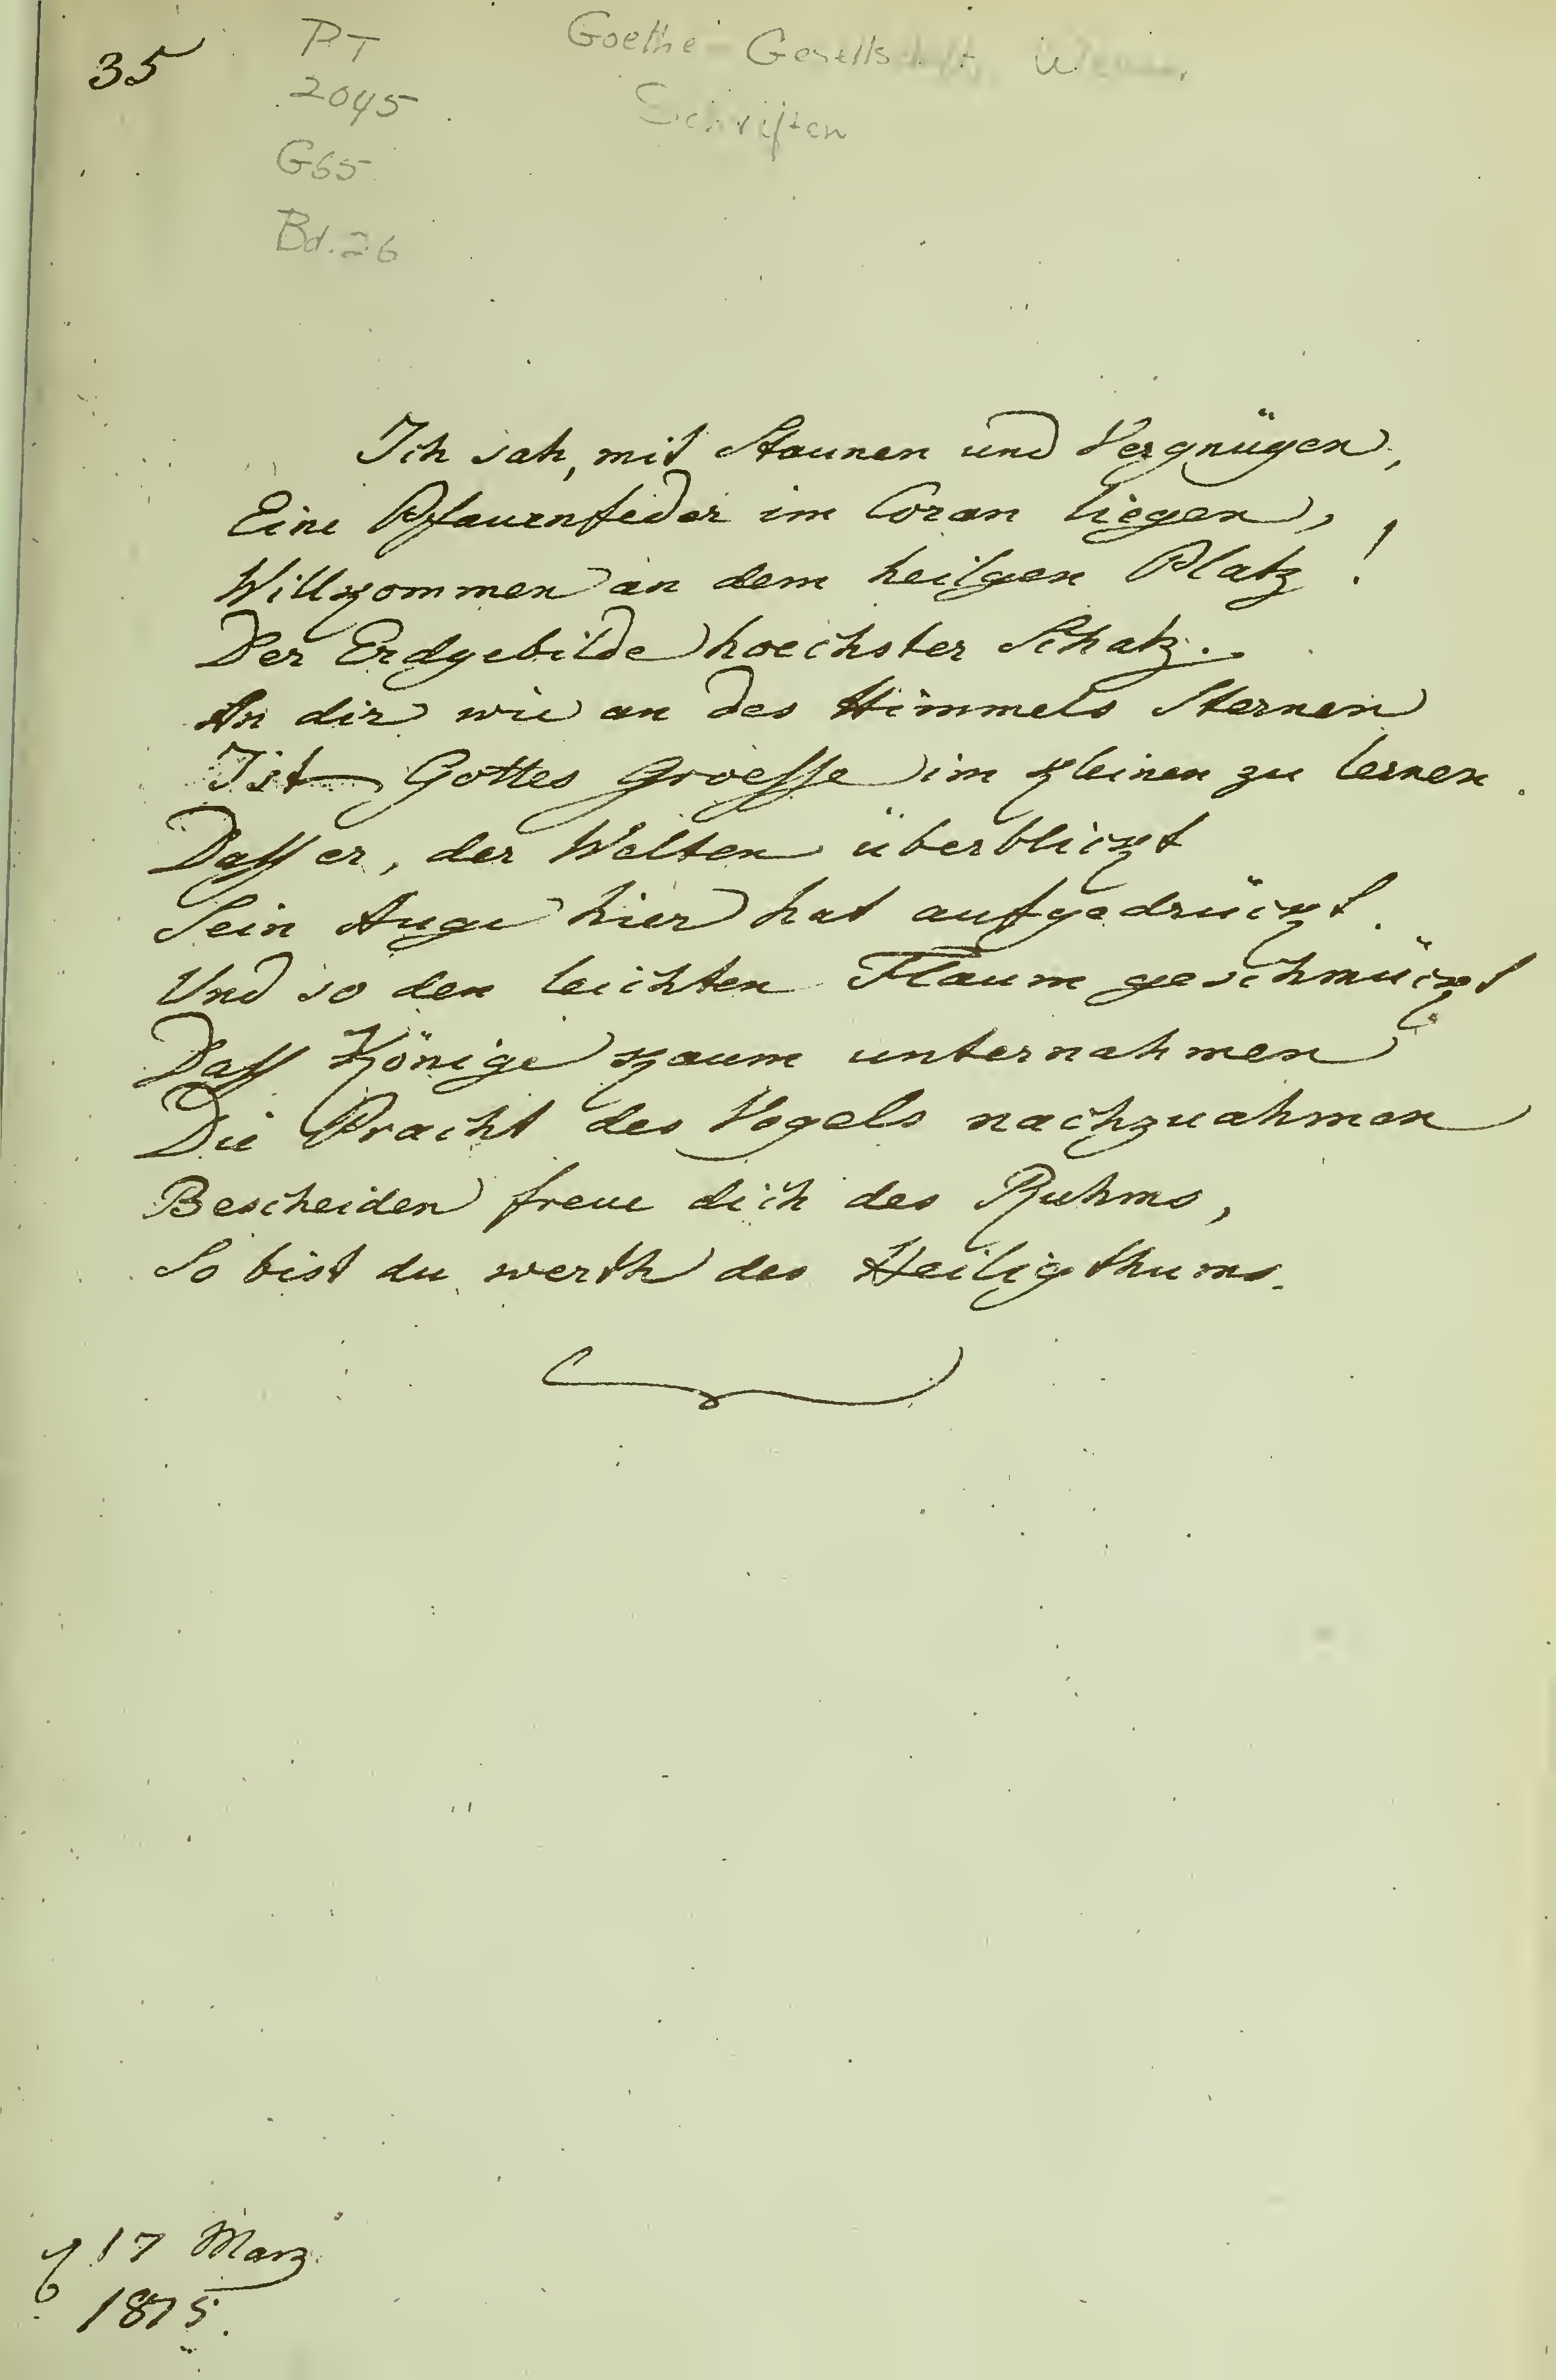 35
PT
2045
G65
Bd. 26
Goethe-Gesellschaft,
Schriften
Ich sah, mit Staunen und Vergnügen,
Eine Pfauenfeder im Coran liegen,
Willkommen an dem heilgen Platz!
Der Erdgebilde hoechster Schatz.
An dir wie an des Himmels Sternen
Ist Gottes Groesse im kleinen zu lernen.
Dass er, der Welten überblickt
Sein Auge hier hat aufgedrückt.
Und so den leichten Flaum geschmückt
Dass Könige kaum unternahmen
Die Pracht des Vogels nachzuahmen
Bescheiden freue dich des Ruhms,
So bist du werth des Heiligthums.
17 Marz
1815.